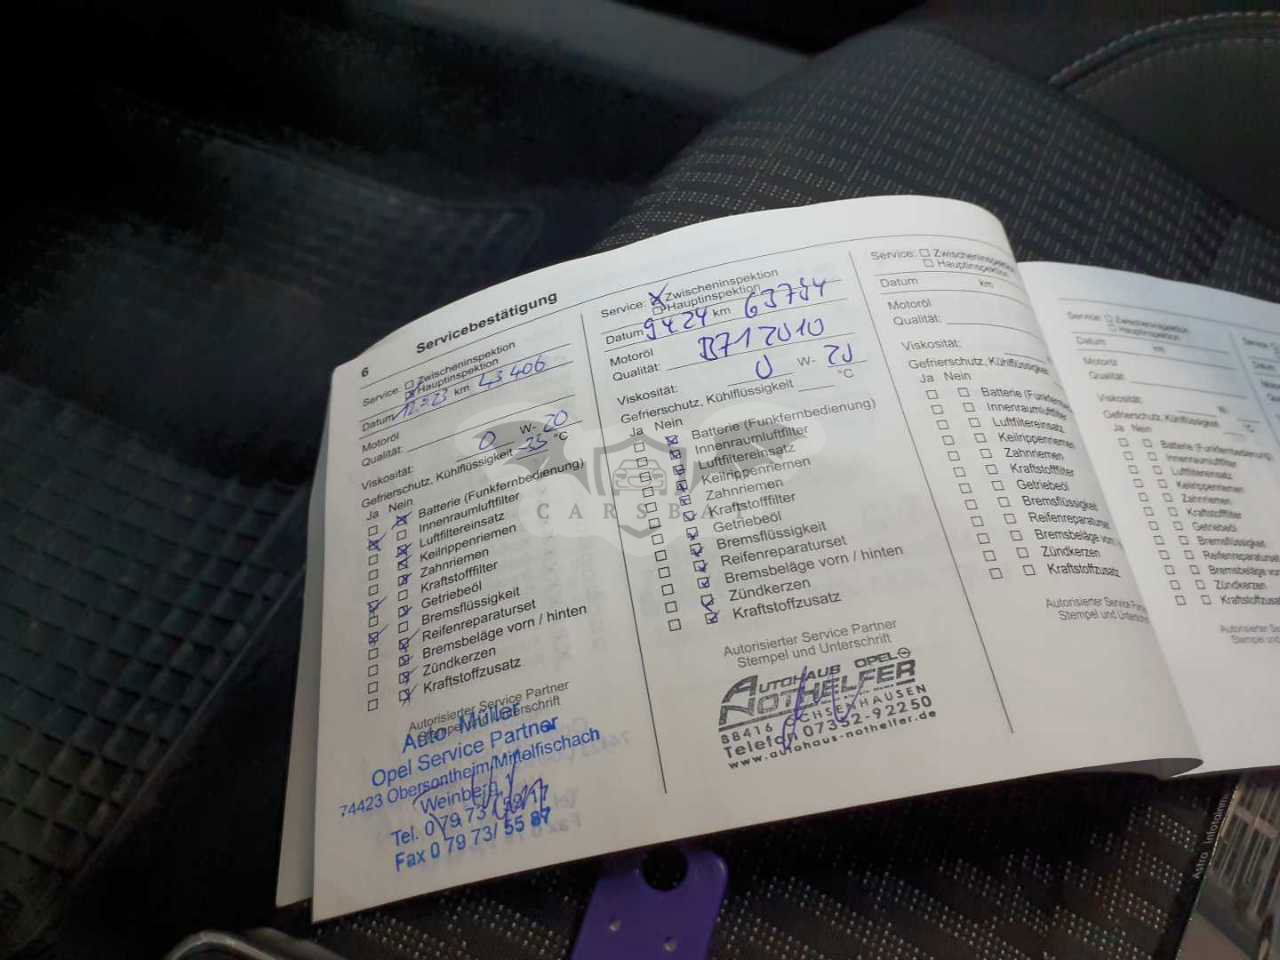 6
Servicebestätigung
Service: Zwischeninspektion
Hauptinspektion
Datum km 43 406
Motoröl
Qualität:
Viskosität: 0 W- 20
Gefrierschutz, Kühlflüssigkeit -35 °C
Ja Nein
Batterie (Funkfernbedienung)
Innenraumluftfilter
Luftfiltereinsatz
Keilrippenriemen
Zahnriemen
Kraftstofffilter
Getriebeöl
Bremsflüssigkeit
Reifenreparaturset
Bremsbeläge vorn / hinten
Zündkerzen
Kraftstoffzusatz
Autorisierter Service Partner
Stempel und Unterschrift
Auto Müller
Opel Service Partner
74423 Obersontheim/Mittelfischach
Weinberg
Tel. 0 79 73
Fax 0 79 73/ 55 87
Service: Zwischeninspektion
Hauptinspektion
Datum 9424 km 63794
Motoröl
Qualität: B712010
Viskosität: 0 W- 20
Gefrierschutz, Kühlflüssigkeit °C
Ja Nein
Batterie (Funkfernbedienung)
Innenraumluftfilter
Luftfiltereinsatz
Keilrippenriemen
Zahnriemen
Kraftstofffilter
Getriebeöl
Bremsflüssigkeit
Reifenreparaturset
Bremsbeläge vorn / hinten
Zündkerzen
Kraftstoffzusatz
Autorisierter Service Partner
Stempel und Unterschrift
AUTOHAUS OPEL
NOTHELFER
88416 OCHSENHAUSEN
Telefon 07352-92250
www.autohaus-nothelfer.de
Service: Zwischeninspektion
Hauptinspektion
Datum km
Motoröl
Qualität:
Viskosität:
Gefrierschutz, Kühlflüssigkeit
Ja Nein
Batterie (Funkfern
Innenraumluftfilter
Luftfiltereinsatz
Keilrippenriemen
Zahnriemen
Kraftstofffilter
Getriebeöl
Bremsflüssigkeit
Reifenreparaturset
Bremsbeläge vorn
Zündkerzen
Kraftstoffzusatz
Autorisierter Service
Stempel und Unterschrift
Service: Zwischeninspektion
Hauptinspektion
Datum km
Motoröl
Qualität:
Viskosität:
Gefrierschutz, Kühlflüssigkeit °C
Ja Nein
Batterie (Funkfernbedienung)
Innenraumluftfilter
Luftfiltereinsatz
Keilrippenriemen
Zahnriemen
Kraftstofffilter
Getriebeöl
Bremsflüssigkeit
Reifenreparaturset
Bremsbeläge vorn
Zündkerzen
Kraftstoffzusatz
Autorisierter
Stempel
Service
Datum
CARSBA
Astra